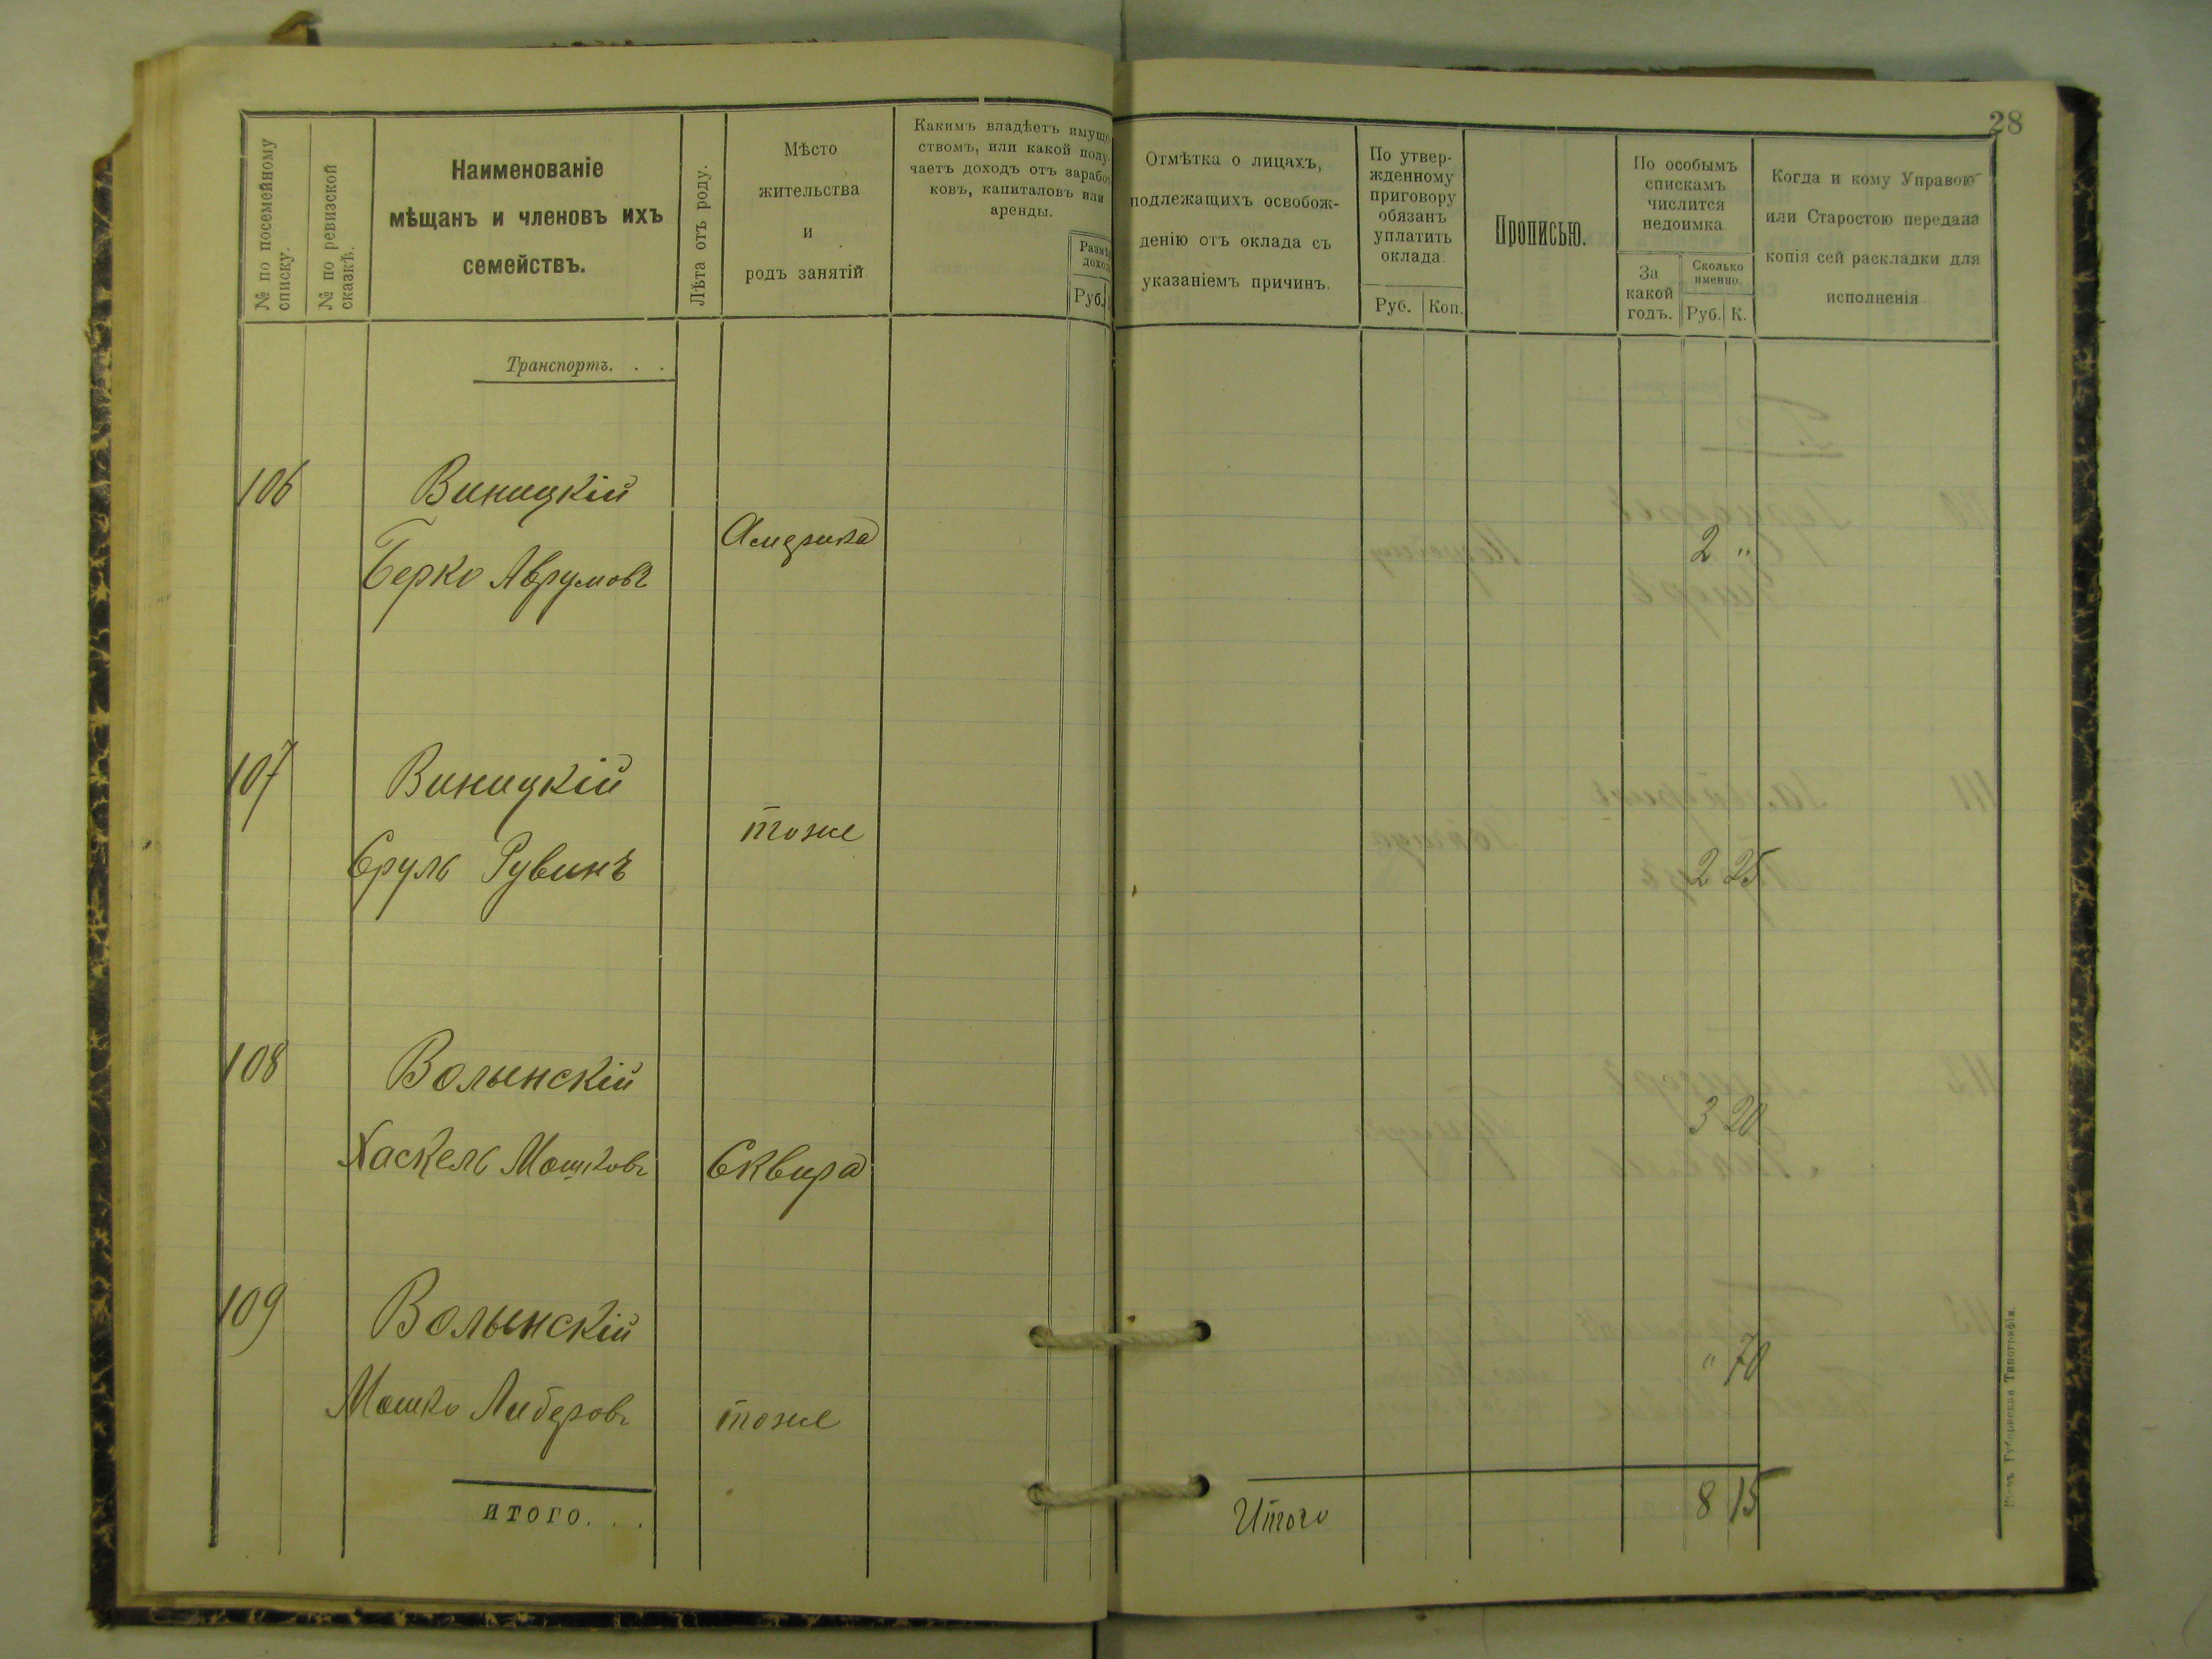 28
№ по посемейному
списку.
№ по ревизской
сказкѣ.
Наименованіе
мѣщанъ и членовъ ихъ
семействъ.
Лѣта отъ роду.
Мѣсто
жительства
и
родъ занятій
Какимъ владѣетъ имуще
ствомъ, или какой полу-
чаетъ доходъ отъ заработ
ковъ, капиталовъ или
аренды.
Размѣ
доход
Руб.
Отмѣтка о лицахъ,
подлежащихъ освобож-
денію отъ оклада съ
указаніемъ причинъ.
По утвер-
жденному
приговору
обязанъ
уплатить
оклада.
Руб.
Коп.
Прописью.
По особымъ
спискамъ
числится
недоимка
За
какой
годъ.
Сколько
именно.
Руб.
К.
Когда и кому Управою
или Старостою передана
копія сей раскладки для
исполненія
Транспортъ. . .
106
Виницкій
Берко Аврумовъ
Америка
2 "
107
Виницкій
Сруль Рувинъ
тоже
2 25
108
Волынскій
Хаскель Мошковъ
Сквира
3 20
109
Волынскій
Мошко Либеровъ
тоже
" 70
итого. . .
Итого
8 15
Губернская Типографія.